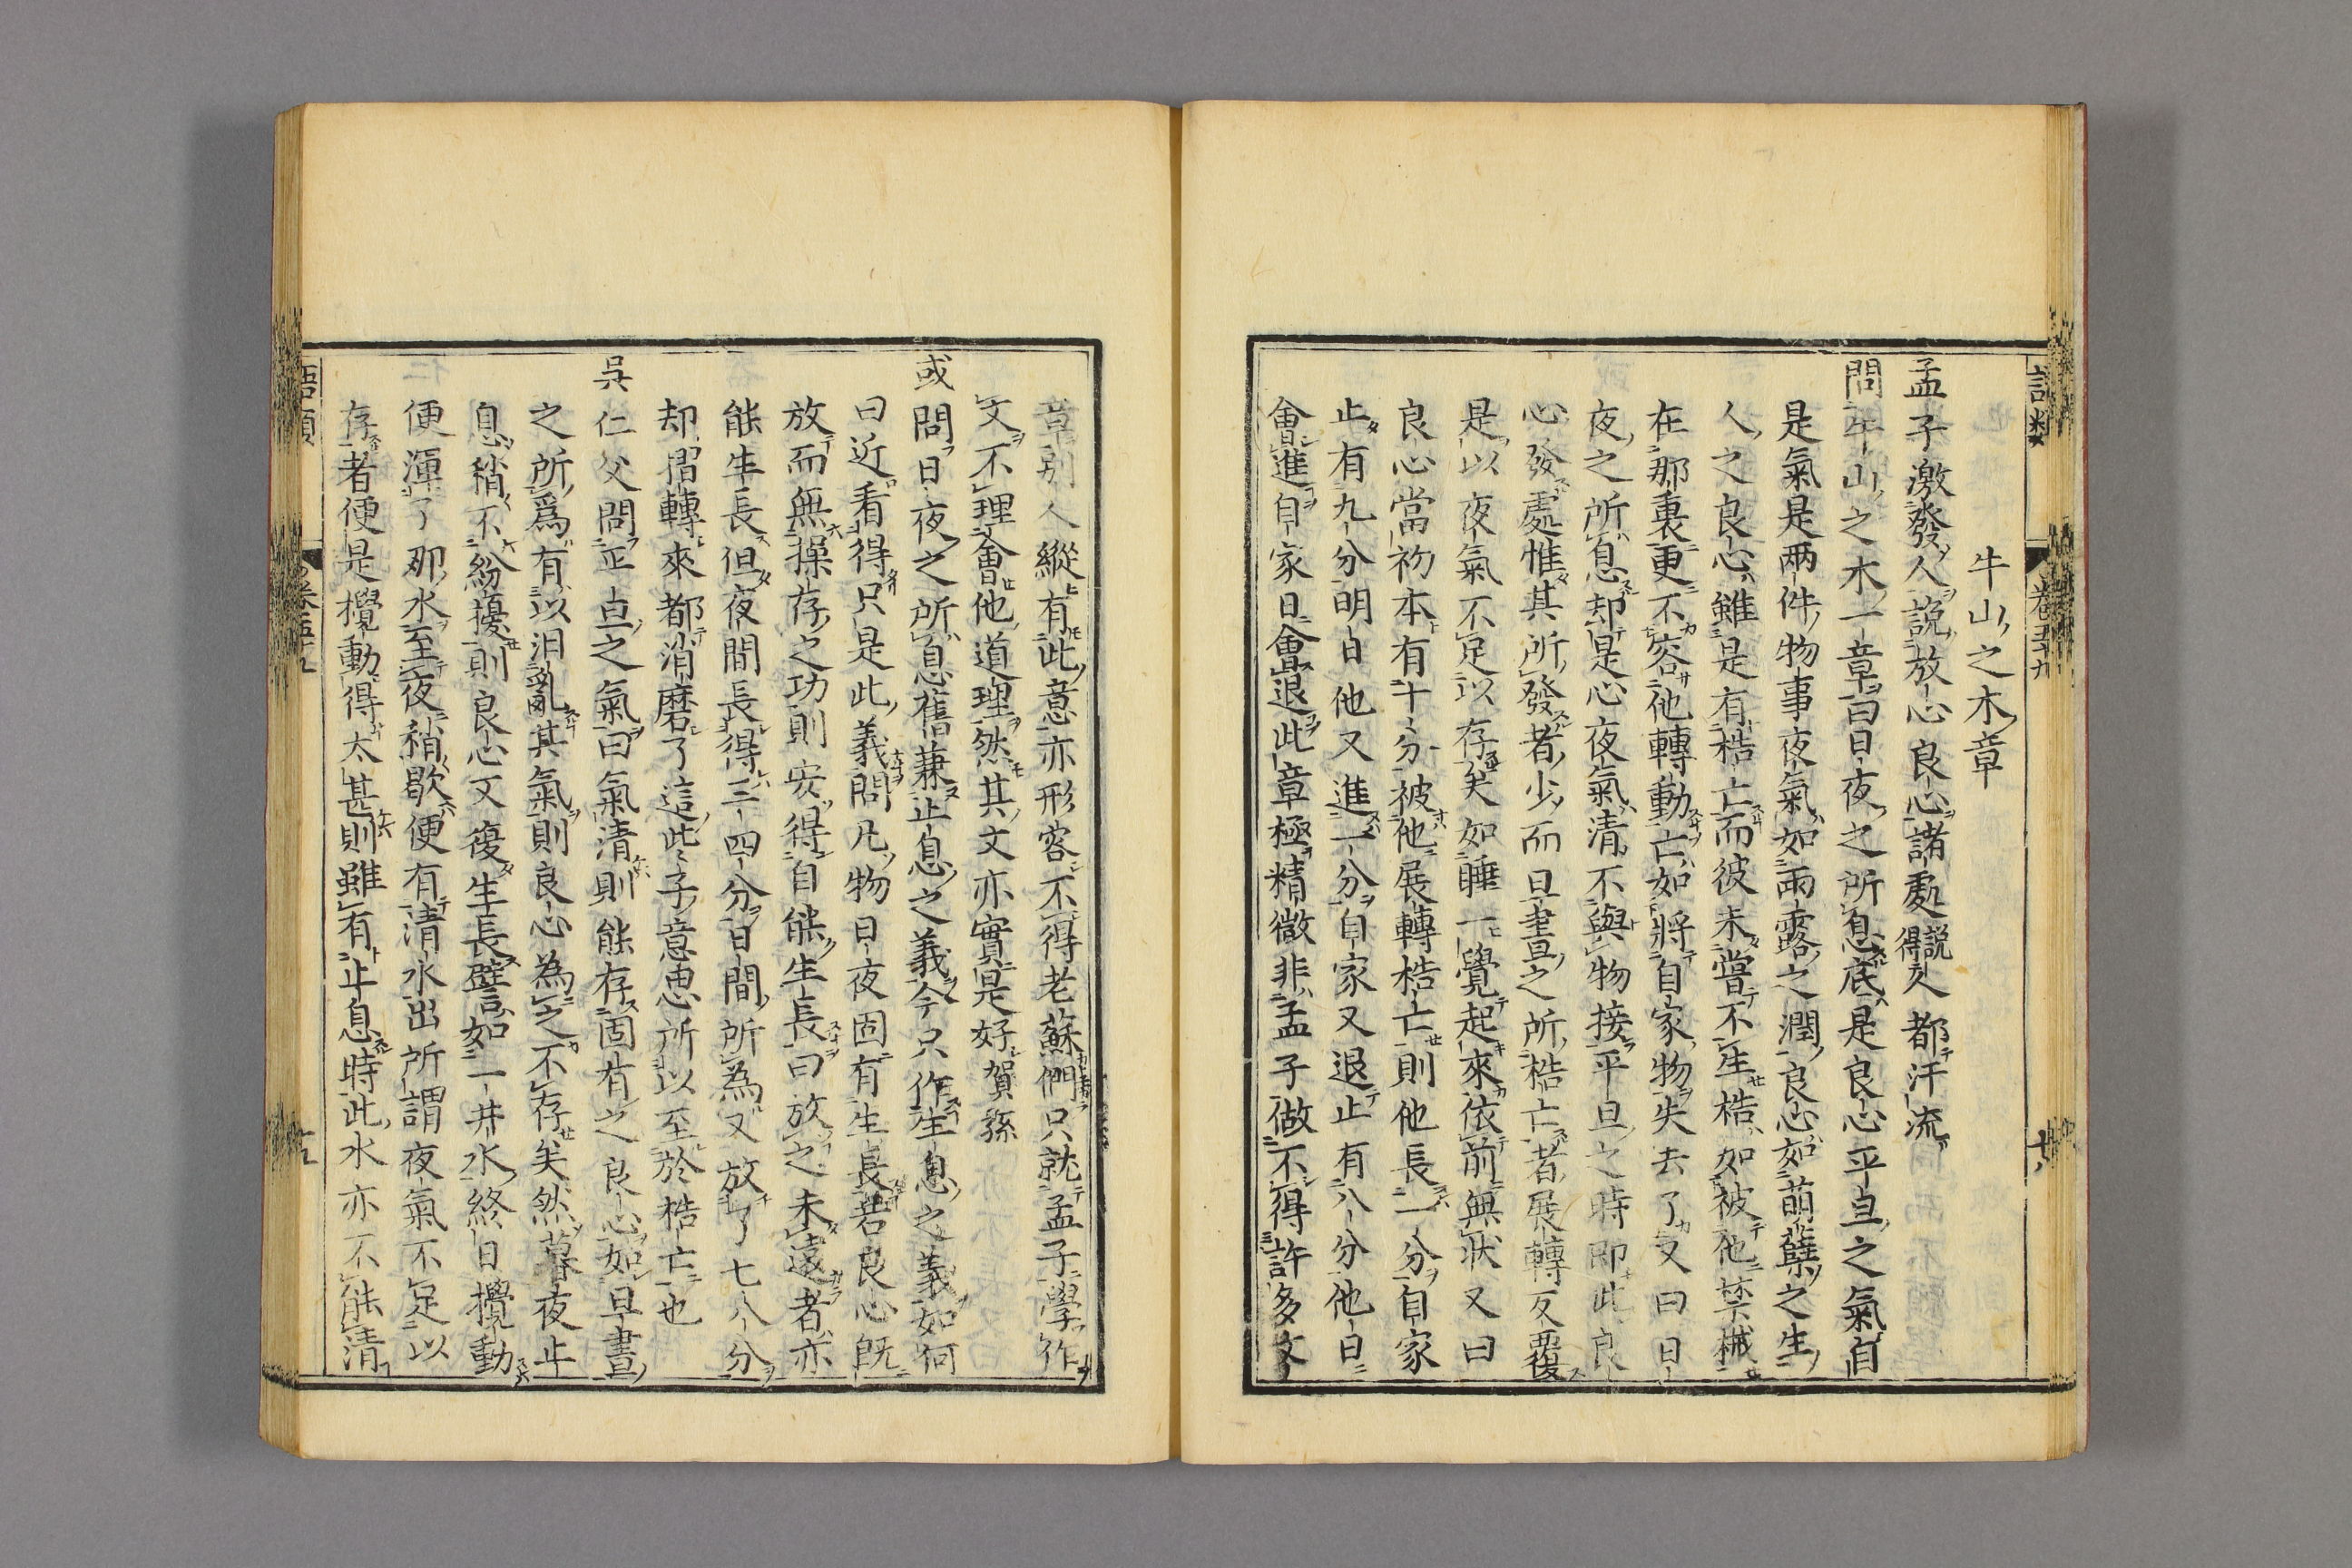 語類
卷五十九
牛山之木章
孟子激發人說放心良心諸處說得人都汗流
問牛山之木一章曰日夜之所息底是良心平旦之氣自
是氣是兩件物事夜氣如雨露之潤良心如萌蘖之生
人之良心雖是有梏亡而彼未嘗不生梏如被他禁械
在那裏更不容他轉動亡如將自家物失去了又曰日
夜之所息却是心夜氣清不與物接平旦之時即此良
心發處惟其所發者少而旦晝之所梏亡者展轉反覆
是以夜氣不足以存矣如睡一覺起來依前無狀又曰
良心當初本有十分被他展轉梏亡則他長一分自家
止有九分明日他又進一分自家又退止有八分他日
會進自家日會退此章極精微非孟子做不得許多文
章別人縱有此意亦形容不得老蘇們只就孟子學作
文不理會他道理然其文亦實是好賀孫
或問日夜之所息舊兼止息之義今只作生息之義如何
曰近看得只是此義問凡物日夜固有生長若良心既
放而無操存之功則安得自能生長曰放之未遠者亦
能生長但夜間長得三四分日間所為又放了七八分
却摺轉來都消磨了這些子意思所以至於梏亡也
吳仁父問平旦之氣曰氣清則能存固有之良心如旦晝
之所爲有以汩亂其氣則良心為之不存矣然暮夜止
息稍不紛擾則良心又復生長譬如一井水終日攪動
便渾了那水至夜稍歇便有清水出所謂夜氣不足以
存者便是攪動得太甚則雖有止息時此水亦不能清
語類
卷五十九